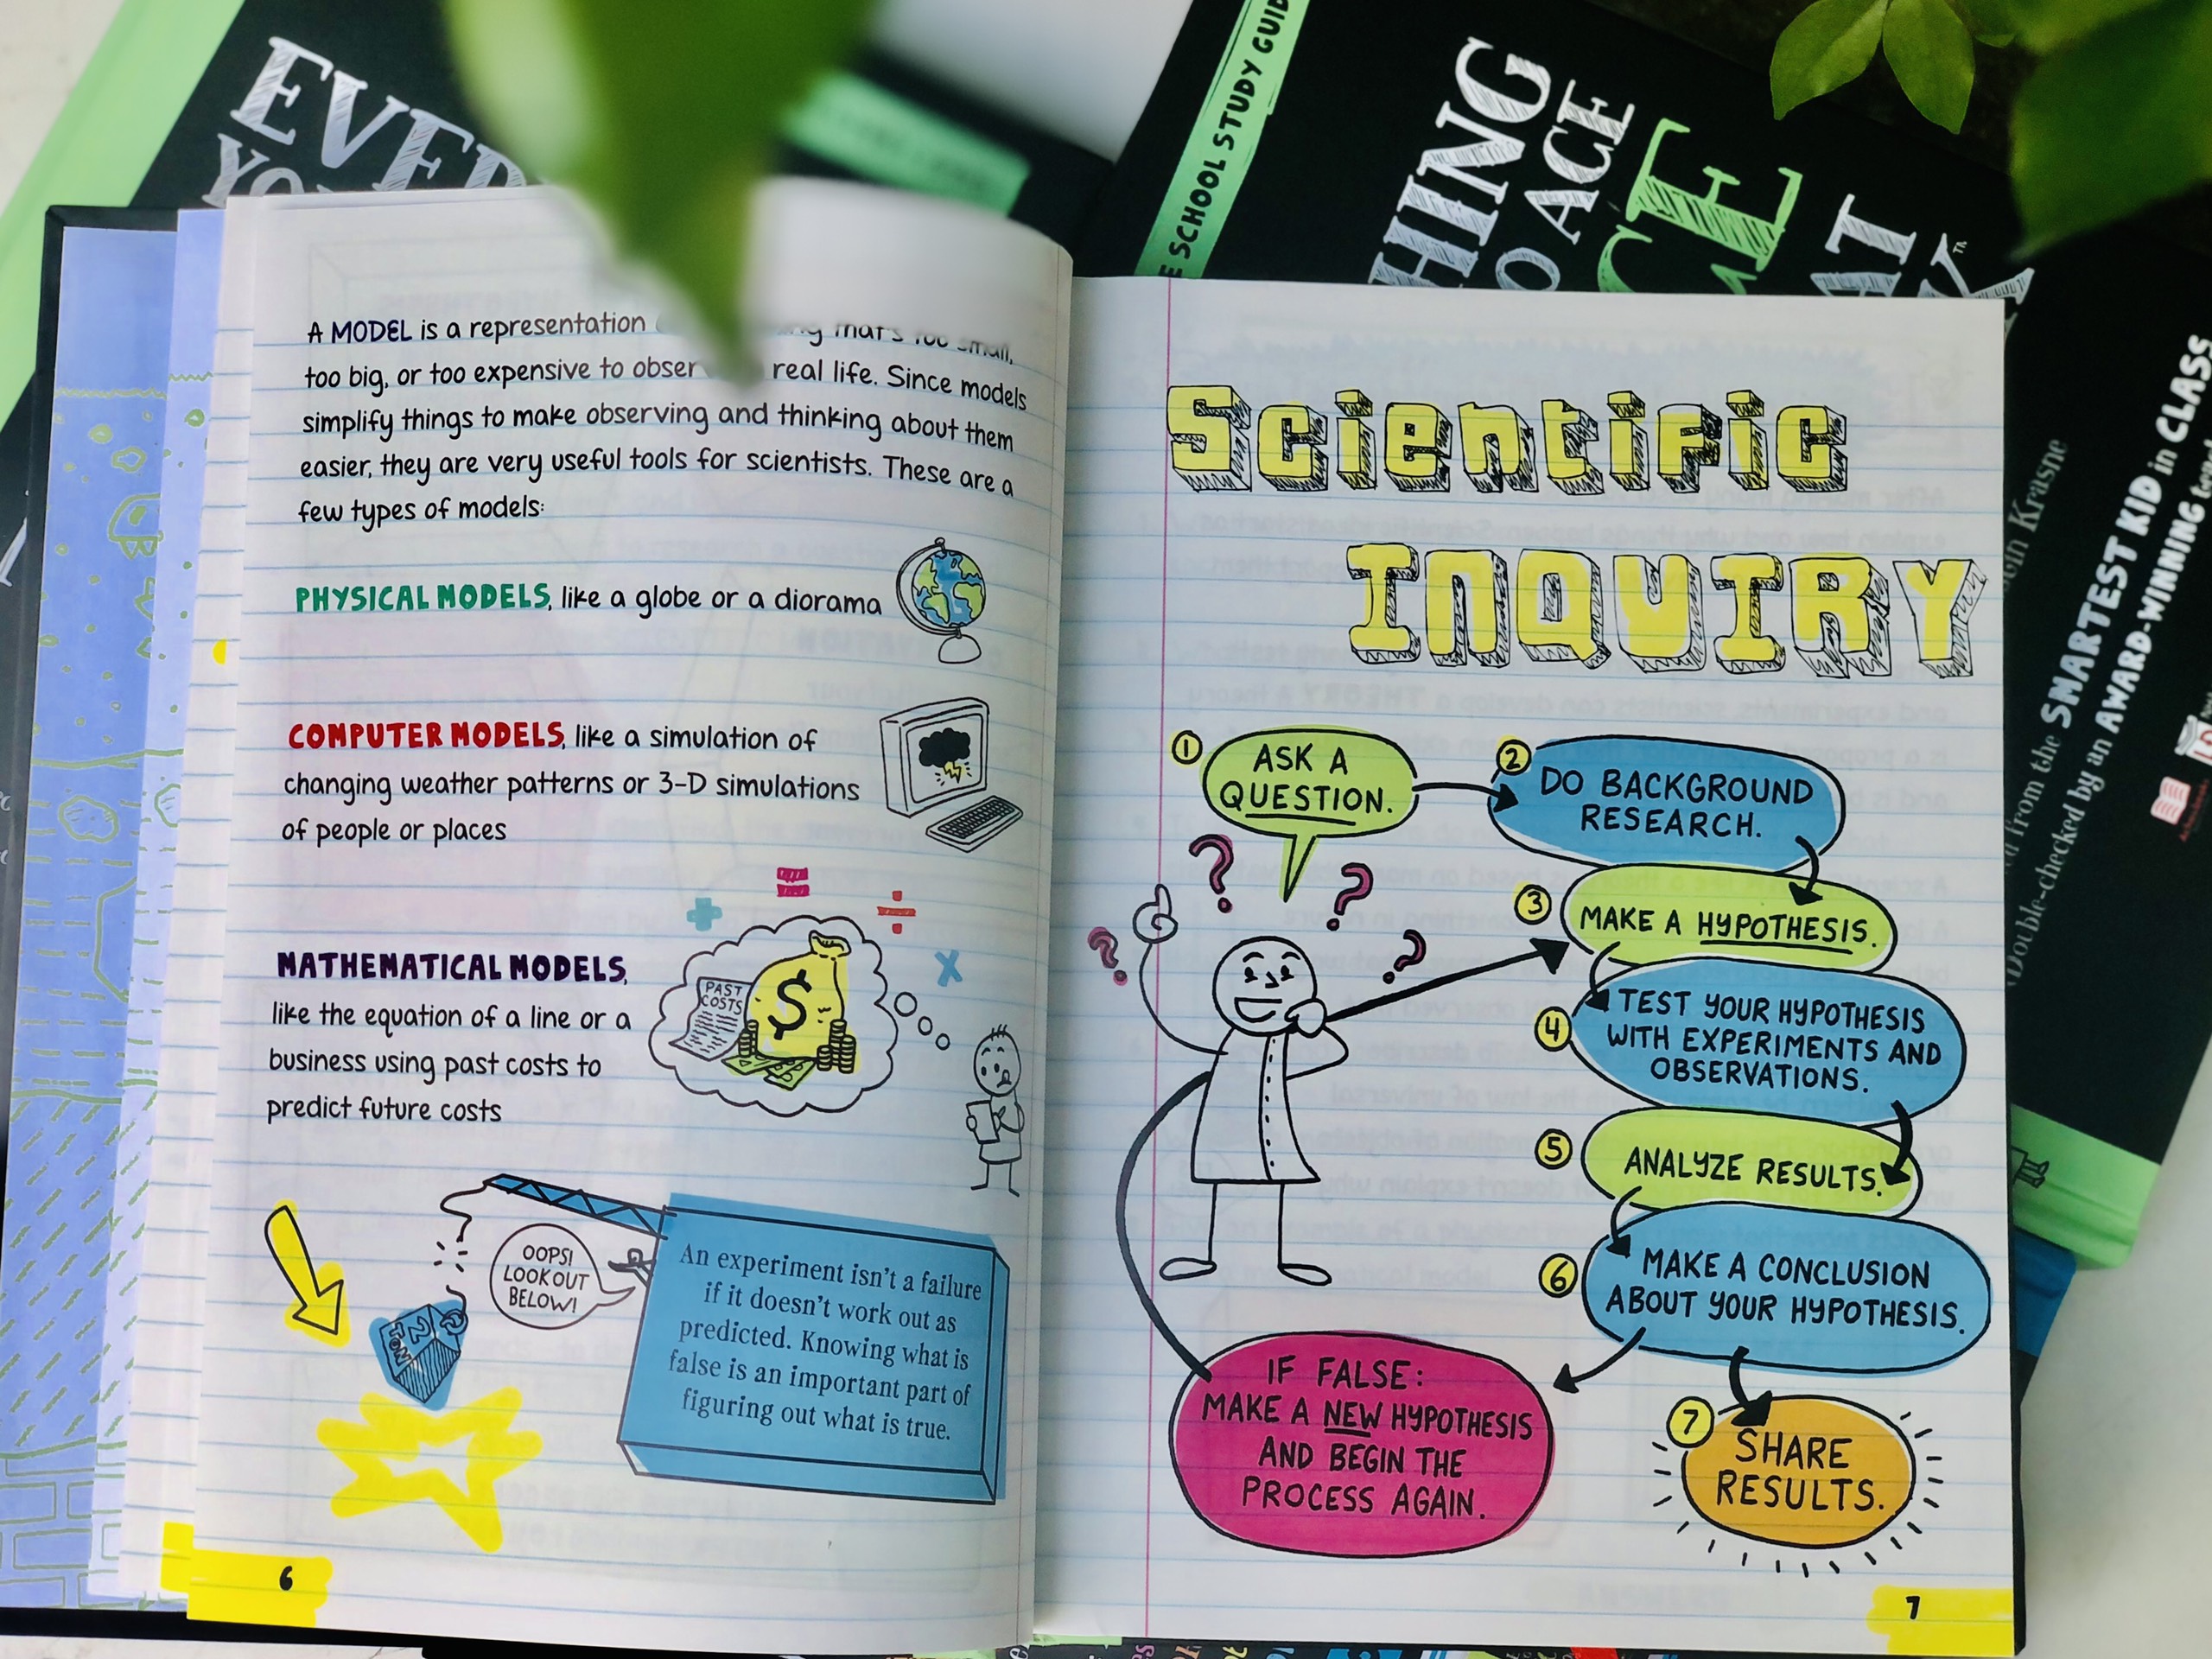 EVER
SCHOOL STUDY GUID
HING
O ACE
AT
TM
A MODEL is a representation that's too small,
too big, or too expensive to obser real life. Since models
simplify things to make observing and thinking about them
easier, they are very useful tools for scientists. These are a
few types of models:
PHYSICAL MODELS, like a globe or a diorama
COMPUTER MODELS, like a simulation of
changing weather patterns or 3-D simulations
of people or places
MATHEMATICAL MODELS,
like the equation of a line or a
business using past costs to
predict future costs
PAST
COSTS
$
OOPS!
LOOK OUT
BELOW!
2
TON
An experiment isn't a failure
if it doesn't work out as
predicted. Knowing what is
false is an important part of
figuring out what is true.
6
Scientific
INQUIRY
1 ASK A
QUESTION.
2 DO BACKGROUND
RESEARCH.
3 MAKE A HYPOTHESIS.
4 TEST YOUR HYPOTHESIS
WITH EXPERIMENTS AND
OBSERVATIONS.
5 ANALYZE RESULTS.
6 MAKE A CONCLUSION
ABOUT YOUR HYPOTHESIS.
IF FALSE:
MAKE A NEW HYPOTHESIS
AND BEGIN THE
PROCESS AGAIN.
7 SHARE
RESULTS.
7
Krasne
from the SMARTEST KID in CLASS
Double-checked by an AWARD-WINNING